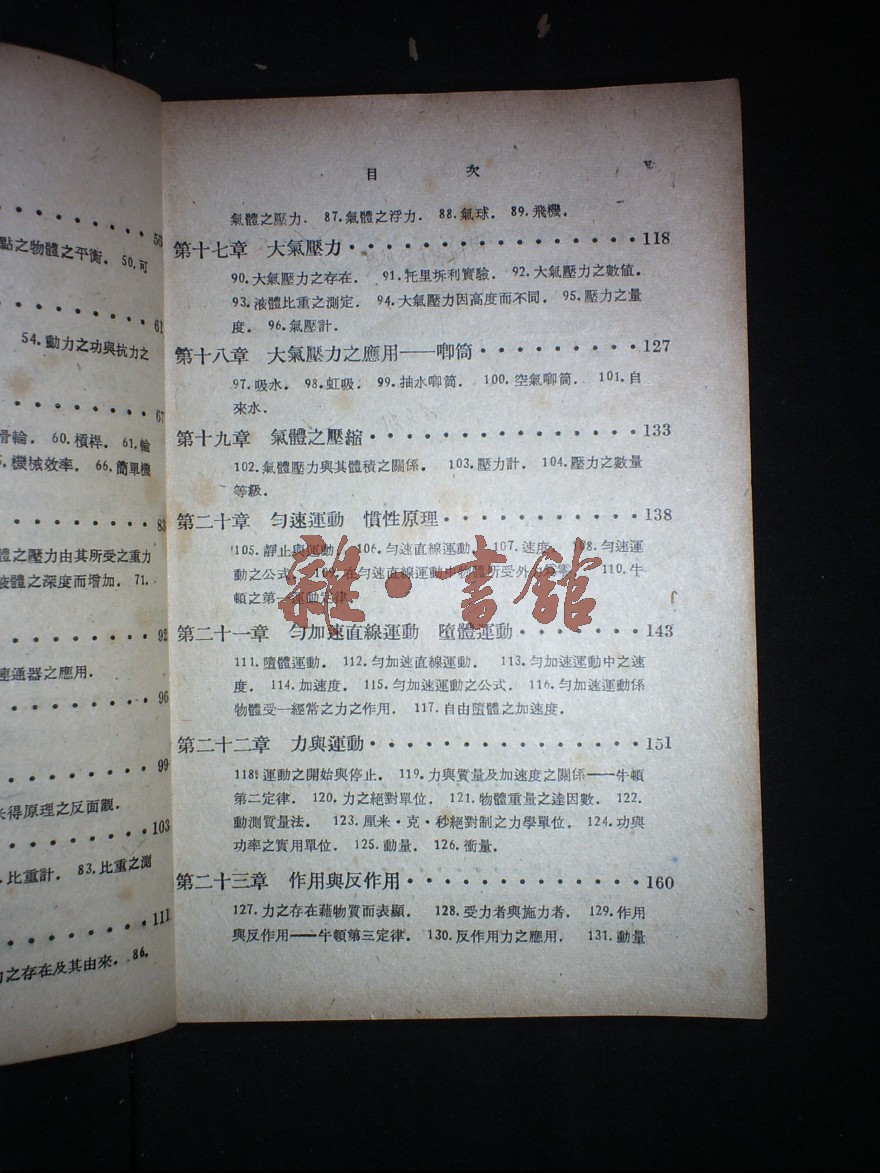 56
點之物體之平衡． 50.可
61
54.動力之功與抗力之
67
滑輪． 60.槓桿． 61.輪
機械效率． 66.簡單機
83
體之壓力由其所受之重力
液體之深度而增加． 71.
92
連通器之應用．
96
99
米得原理之反面觀．
103
比重計． 83.比重之測
111
力之存在及其由來． 86.
目 次 V
氣體之壓力． 87.氣體之浮力． 88.氣球． 89.飛機．
第十七章 大氣壓力 118
90.大氣壓力之存在． 91.牦里坼利實驗． 92.大氣壓力之數值．
93.液體比重之測定． 94.大氣壓力因高度而不同． 95.壓力之量
度． 96.氣壓計．
第十八章 大氣壓力之應用——喞筒 127
97.吸水． 98.虹吸． 99.抽水喞筒． 100.空氣喞筒． 101.自
來水．
第十九章 氣體之壓縮 133
102.氣體壓力與其體積之關係． 103.壓力計． 104.壓力之數量
等級．
第二十章 勻速運動 慣性原理 138
105.靜止與運動． 106.勻速直線運動． 107.速度． 108.勻速運
動之公式． 109.在勻速直線運動中物體所受外力 110.牛
頓之第一運動定律．
雜·書館
第二十一章 勻加速直線運動 墮體運動 143
111.墮體運動． 112.勻加速直線運動． 113.勻加速運動中之速
度． 114.加速度． 115.勻加速運動之公式． 116.勻加速運動係
物體受一經常之力之作用． 117.自由墮體之加速度．
第二十二章 力與運動 151
118.運動之開始與停止． 119.力與質量及加速度之關係——牛頓
第二定律． 120.力之絕對單位． 121.物體重量之達因數． 122.
動測質量法． 123.厘米·克·秒絕對制之力學單位． 124.功與
功率之實用單位． 125.動量． 126.衝量．
第二十三章 作用與反作用 160
127.力之存在藉物質而表顯． 128.受力者與施力者． 129.作用
與反作用——牛頓第三定律． 130.反作用力之應用． 131.動量